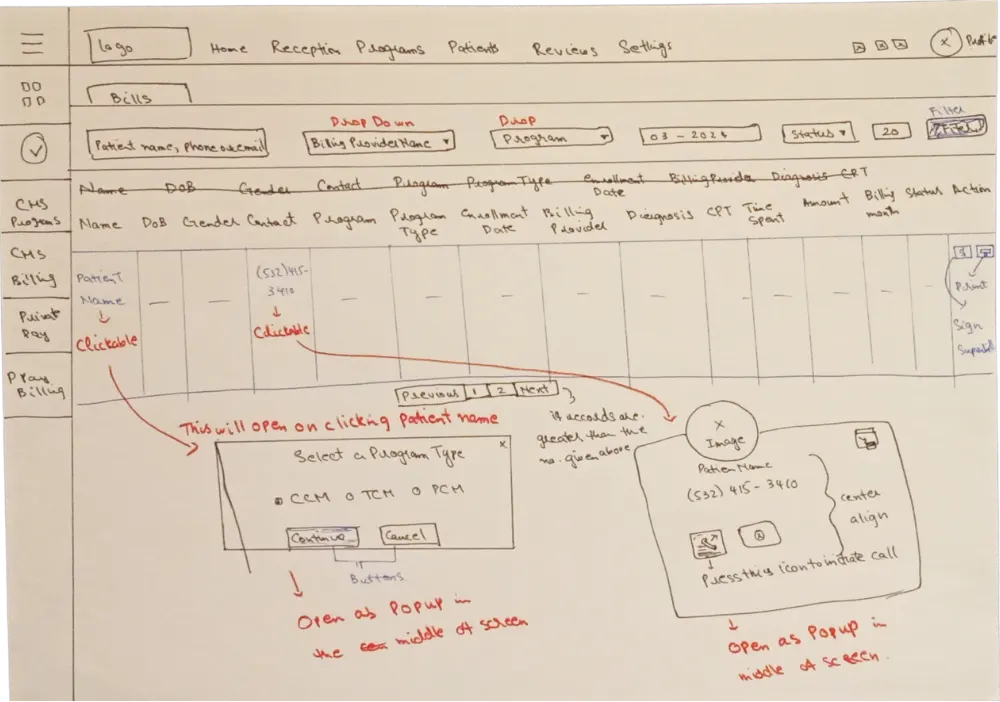 Logo Home Reception Programs Patients Reviews Settings Profile
Bills
Filter
Drop Down Drop
Patient name, phone or email Billing Provider Name Program 03 - 2024 Status 20 Filter
Name DOB Gender Contact Program Program Type Enrollment Date Billing Provider Diagnosis CPT
Name DoB Gender Contact Program Program Type Enrollment Date Billing Provider Diegnosis CPT Time Spent Amount Billing month Status Action
CMS
Programs
CMS
Billing
Private
Pay
Billing
Patient
Name
Clickable
(532) 415-
3410
Clickable
Print
Sign
Previous 1 2 Next
if records are
greater than the
no. given above
This will open on clicking Patient name
Select a Program Type
x
CCM TCM PCM
Continue Cancel
Buttons
Open as Popup in
the middle of screen
x
Image
Patien Name
(532) 415 - 3410
center
align
Press this icon to initiate call
Open as Popup in
middle of screen.